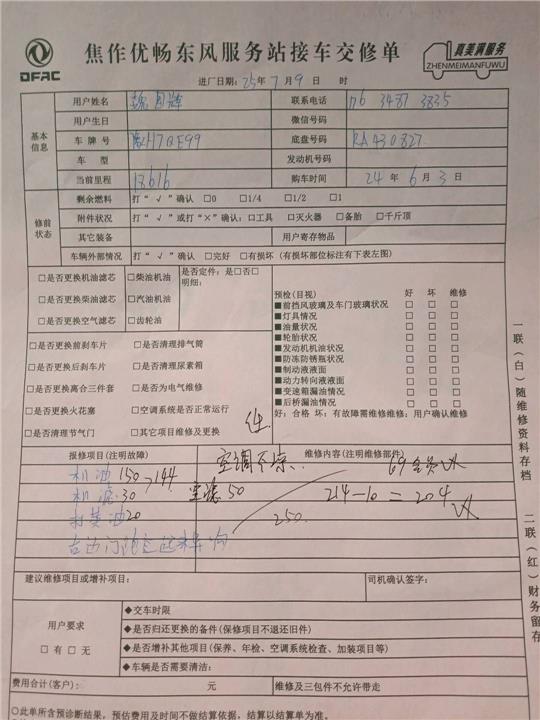 DFAC
焦作优畅东风服务站接车交修单
真美满服务
ZHENMEIMANFUWU
进厂日期：25年7月9日 时
基本信息
用户姓名
联系电话 176 3487 3835
用户生日 微信号码
车牌号 H7QE99 底盘号码 RA430827
车型 发动机号码
当前里程 13616 购车时间 24年6月3日
修前状态
剩余燃料 打“√”确认 □0 □1/4 □1/2 □1
附件状况 打“√”或打“×”确认：□工具 □灭火器 □备胎 □千斤顶
其它装备 用户寄存物品
车辆外部情况 打“√”确认 □完好 □有损坏（有损坏部位标注有下表左图）
□是否更换机油滤芯 □柴油机油 是否定件：是□否□
明细：
□是否更换柴油滤芯 □汽油机油
□是否更换空气滤芯 □齿轮油
□是否更换前刹车片 □是否清理排气筒
□是否更换后刹车片 □是否清理尿素箱
□是否更换离合三件套 □是否为电气维修
□是否更换火花塞 □空调系统是否正常运行
□是否清理节气门 □其它项目维修及更换
预检（目视） 好 坏 维修
■前挡风玻璃及车门玻璃状况 □ □ □
■灯具情况 □ □ □
■油量状况 □ □ □
■轮胎状况 □ □ □
■发动机机油状况 □ □ □
■防冻防锈瓶状况 □ □ □
■制动液液面 □ □ □
■动力转向液液面 □ □ □
■变速箱漏油情况 □ □ □
■后桥漏油情况 □ □ □
好：合格 坏：有故障需维修维修：用户确认维修
报修项目（注明故障） 维修内容（注明维修部件）
空调不凉
机油150 144
机滤30 空滤50 214-10=204
20 250
建议维修项目或增补项目： 司机确认签字：
用户要求
□有□无
◆交车时限
◆是否归还更换的备件（保修项目不退还旧件）
◆是否增补其他项目（保养、年检、空调系统检查、加装项目等）
◆车辆是否需要清洁：
费用合计（客户）： 元 维修及三包件不允许带走
◎此单所含预诊断结果，预估费用及时间不做结算依据，结算以结算单为准。
一联（白）随维修资料存档
二联（红）财务留存